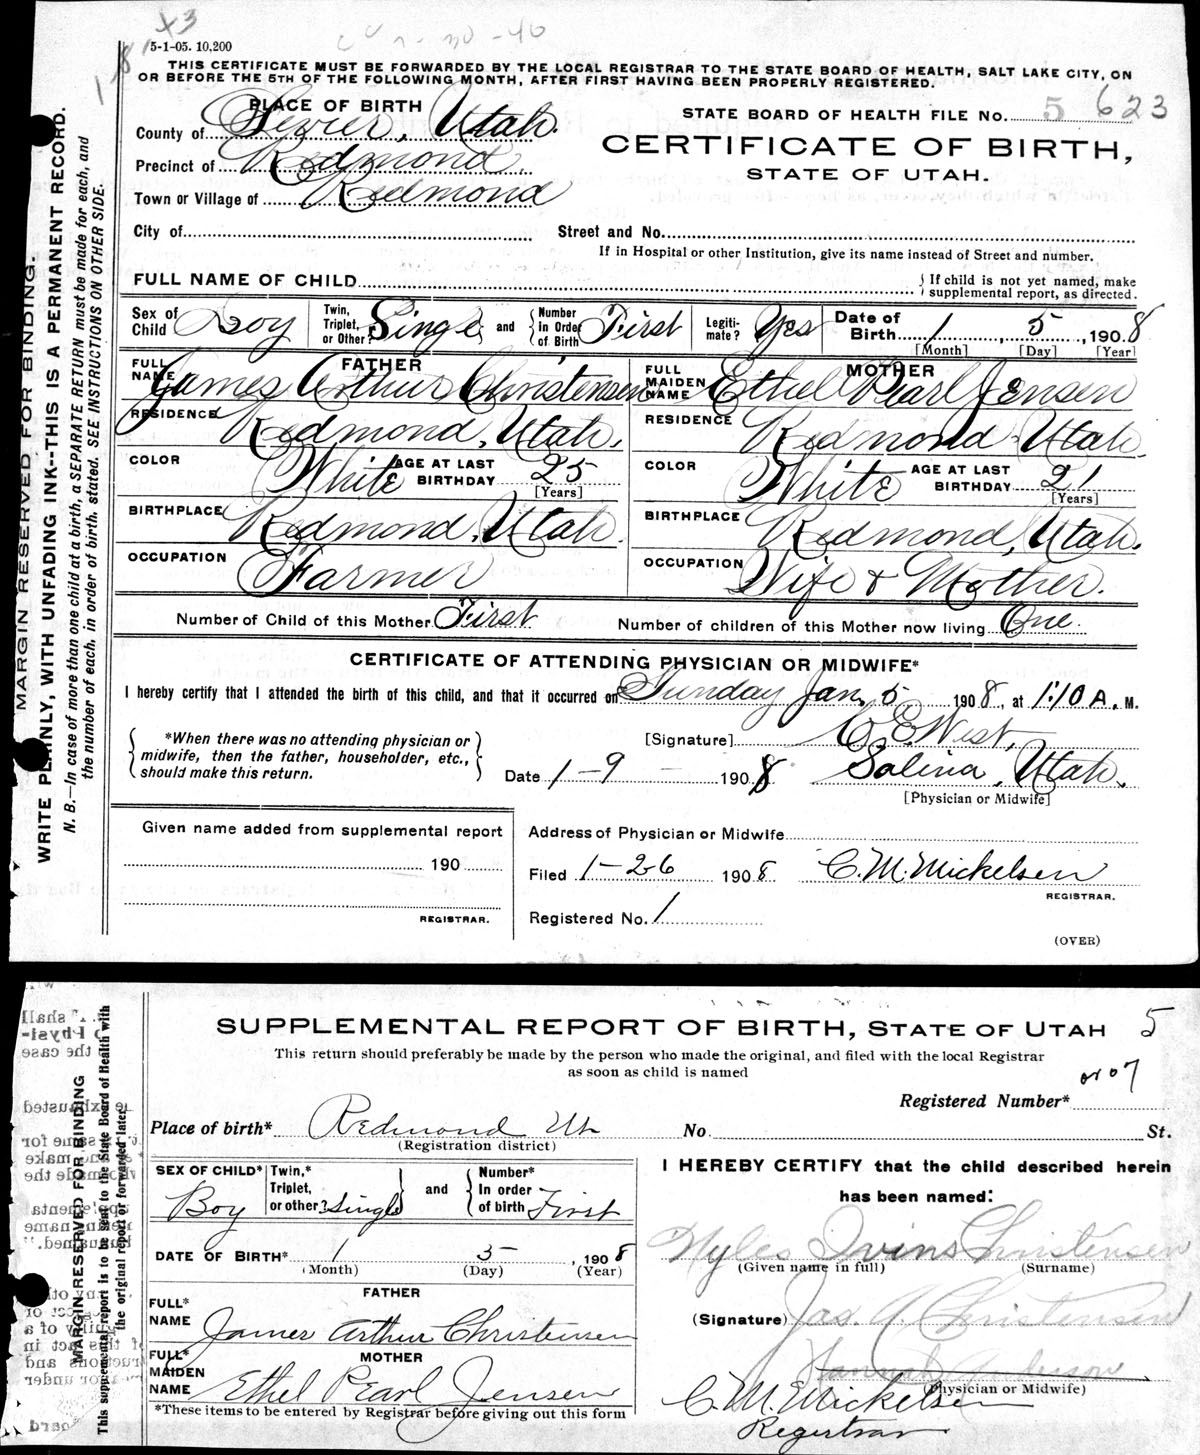 5-1-05. 10,200
THIS CERTIFICATE MUST BE FORWARDED BY THE LOCAL REGISTRAR TO THE STATE BOARD OF HEALTH, SALT LAKE CITY, ON
OR BEFORE THE 5TH OF THE FOLLOWING MONTH, AFTER FIRST HAVING BEEN PROPERLY REGISTERED.
PLACE OF BIRTH
County of Sevier, Utah.
Precinct of Redmond,
Town or Village of Redmond
City of
STATE BOARD OF HEALTH FILE No. 5 623
CERTIFICATE OF BIRTH,
STATE OF UTAH.
Street and No.
If in Hospital or other Institution, give its name instead of Street and number.
FULL NAME OF CHILD
If child is not yet named, make
supplemental report, as directed.
Sex of Child Boy
Twin, Triplet, or Other? Single and Number in Order of Birth First
Legiti-mate? Yes
Date of Birth 1, 5, 1908
[Month] [Day] [Year]
FATHER
FULL NAME James Arthur Christensen
RESIDENCE Redmond, Utah.
COLOR White AGE AT LAST BIRTHDAY 25
[Years]
BIRTHPLACE Redmond, Utah.
OCCUPATION Farmer
MOTHER
FULL MAIDEN NAME Ethel Pearl Jensen
RESIDENCE Redmond, Utah.
COLOR White AGE AT LAST BIRTHDAY 21
[Years]
BIRTHPLACE Redmond, Utah.
OCCUPATION Wife & Mother.
Number of Child of this Mother First Number of children of this Mother now living One.
CERTIFICATE OF ATTENDING PHYSICIAN OR MIDWIFE*
I hereby certify that I attended the birth of this child, and that it occurred on Sunday Jan. 5 1908, at 1:10 A. M.
*When there was no attending physician or
midwife, then the father, householder, etc.,
should make this return.
[Signature] C. E. West,
Date 1-9 1908 Salina, Utah.
[Physician or Midwife]
Given name added from supplemental report
190
REGISTRAR.
Address of Physician or Midwife
Filed 1-26 1908 C. M. Mickelsen
REGISTRAR.
Registered No. 1
(OVER)
MARGIN RESERVED FOR BINDING.
WRITE PLAINLY, WITH UNFADING INK--THIS IS A PERMANENT RECORD.
N. B.—In case of more than one child at a birth, a SEPARATE RETURN must be made for each, and
the number of each, in order of birth, stated. SEE INSTRUCTIONS ON OTHER SIDE.
SUPPLEMENTAL REPORT OF BIRTH, STATE OF UTAH 5
This return should preferably be made by the person who made the original, and filed with the local Registrar
as soon as child is named
Registered Number*
Place of birth* Redmond Ut No. St.
(Registration district)
SEX OF CHILD* Boy
Twin,* Triplet, or other? Single and Number* In order of birth First
DATE OF BIRTH* 1 5, 1908
(Month) (Day) (Year)
FATHER
FULL* NAME James Arthur Christensen
MOTHER
FULL* MAIDEN NAME Ethel Pearl Jensen
*These items to be entered by Registrar before giving out this form
I HEREBY CERTIFY that the child described herein
has been named:
Myles Ivins Christensen
(Given name in full) (Surname)
(Signature) Jas. A. Christensen
Hannah Anderson
(Physician or Midwife)
C. M. Mickelsen
Registrar
MARGIN RESERVED FOR BINDING
This supplemental report is to be sent to the State Board of Health with
the original report or forwarded later.